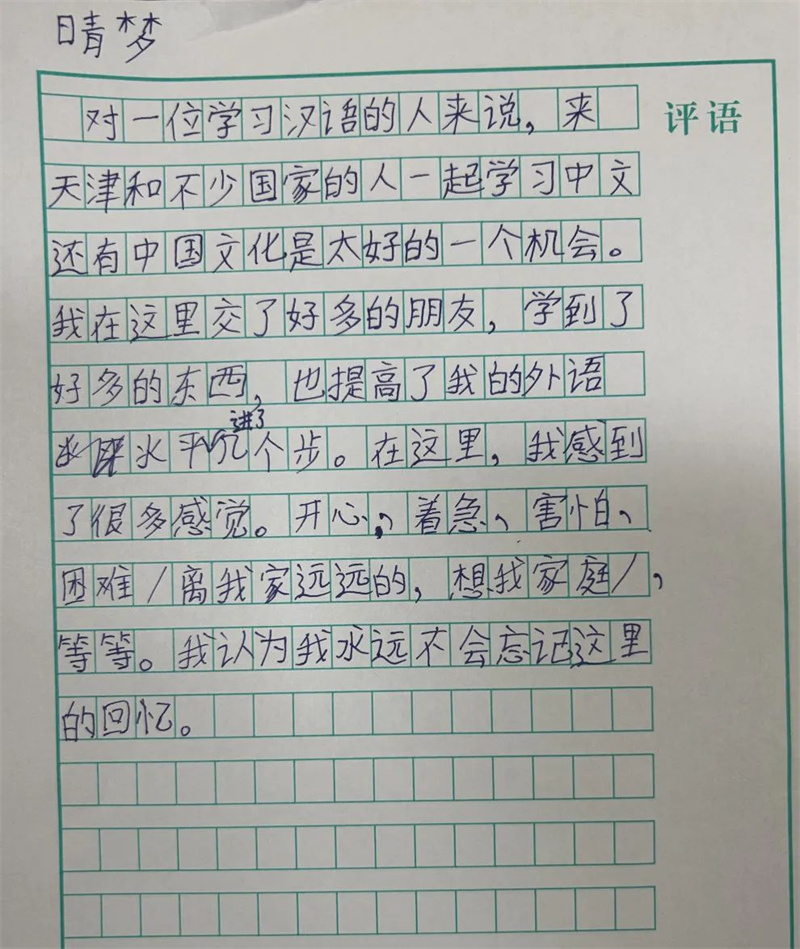 晴梦
评语
对一位学习汉语的人来说，来
天津和不少国家的人一起学习中文
还有中国文化是太好的一个机会。
我在这里交了好多的朋友，学到了
好多的东西，也提高了我的外语
水平进了几个步。在这里，我感到
了很多感觉。开心、着急、害怕、
困难/离我家远远的，想我家庭/，
等等。我认为我永远不会忘记这里
的回忆。